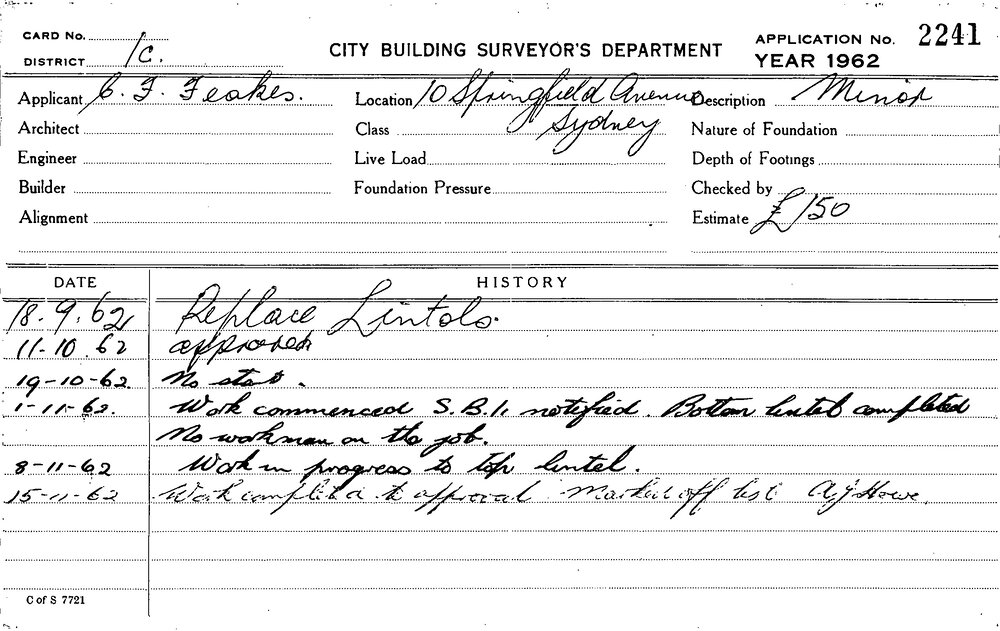 CARD No.
DISTRICT 1C.
CITY BUILDING SURVEYOR'S DEPARTMENT
APPLICATION No. 2241
YEAR 1962
Applicant C. F. Feakes. Location 10 Springfield Avenue Description Minor
Architect Class Sydney Nature of Foundation
Engineer Live Load Depth of Footings
Builder Foundation Pressure Checked by
Alignment Estimate £150
DATE HISTORY
18.9.62 Replace Lintols.
11-10.62 approved
19-10-62. No start.
1-11-62. Work commenced S.B.I. notified. Bottom lintel completed
No workman on the job.
8-11-62 Work in progress to top lintel.
15-11-62 Work completed to approval Marked off list A.J Howe.
C of S 7721